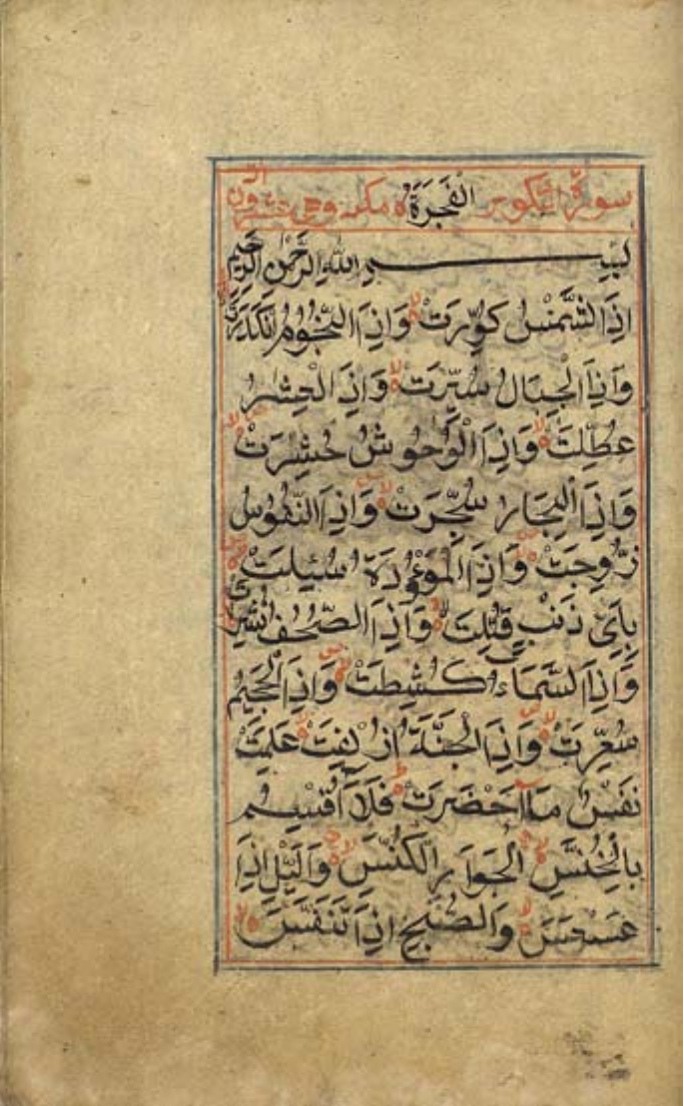 سورة التكوير الفجرة مكية وهي عشرون
بسم الله الرحمن الرحيم
اِذَا الشَّمْسُ كُوِّرَتْ وَاِذَا النُّجُوْمُ انْكَدَرَتْ
وَاِذَا الْجِبَالُ سُيِّرَتْ وَاِذَا الْعِشَارُ
عُطِّلَتْ وَاِذَا الْوُحُوْشُ حُشِرَتْ
وَاِذَا الْبِحَارُ سُجِّرَتْ وَاِذَا النُّفُوْسُ
زُوِّجَتْ وَاِذَا الْمَوْءُوْدَةُ سُئِلَتْ
بِاَيِّ ذَنْبٍ قُتِلَتْ وَاِذَا الصُّحُفُ نُشِرَتْ
وَاِذَا السَّمَاءُ كُشِطَتْ وَاِذَا الْجَحِيْمُ
سُعِّرَتْ وَاِذَا الْجَنَّةُ اُزْلِفَتْ عَلِمَتْ
نَفْسٌ مَا اَحْضَرَتْ فَلَا اُقْسِمُ
بِالْخُنَّسِ الْجَوَارِ الْكُنَّسِ وَالَّيْلِ اِذَا
عَسْعَسَ وَالصُّبْحِ اِذَا تَنَفَّسَ